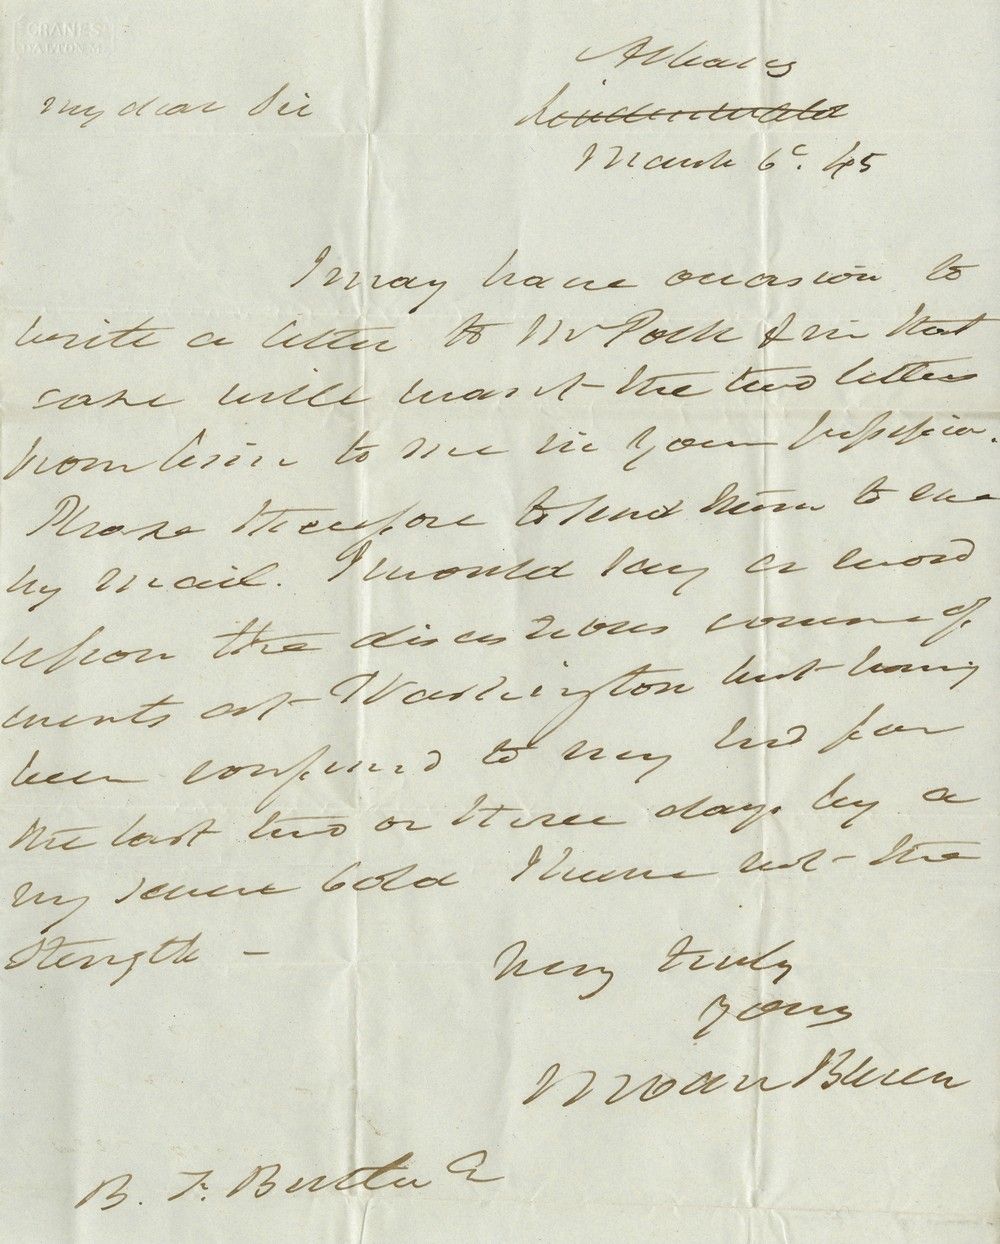 CRANES
DALTON M.
Albany
My dear Sir
~~Lindenwald~~
March 6. 45
I may have occasion to
write a letter to Mr Polk & in that
case will want the two letters
from him to me in your possession.
Please therefore to send them to me
by mail. I would say a word
upon the disastrous course of
events at Washington but having
been confined to my bed for
the last two or three days by a
very severe Cold I have not the
strength -
Very truly
yours
M Van Buren
B. F. Butler